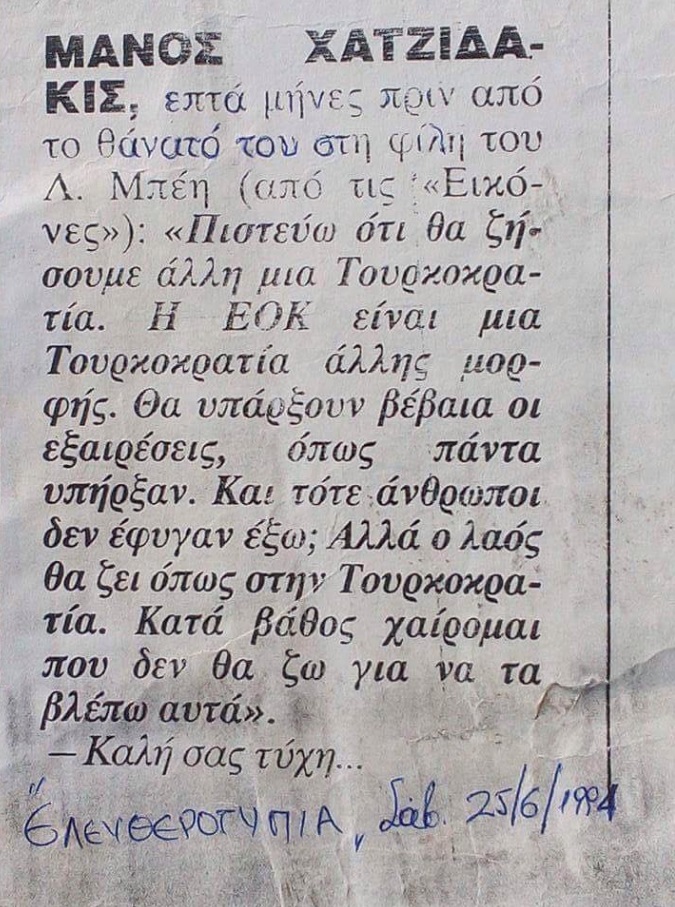 ΜΑΝΟΣ ΧΑΤΖΙΔΑ-
ΚΙΣ, επτά μήνες πριν από
το θάνατό του στη φίλη του
Λ. Μπέη (από τις «Εικό-
νες»): «Πιστεύω ότι θα ζή-
σουμε άλλη μια Τουρκοκρα-
τία. Η ΕΟΚ είναι μια
Τουρκοκρατία άλλης μορ-
φής. Θα υπάρξουν βέβαια οι
εξαιρέσεις, όπως πάντα
υπήρξαν. Και τότε άνθρωποι
δεν έφυγαν έξω; Αλλά ο λαός
θα ζει όπως στην Τουρκοκρα-
τία. Κατά βάθος χαίρομαι
που δεν θα ζω για να τα
βλέπω αυτά».
— Καλή σας τύχη...
"ΕΛΕΥΘΕΡΟΤΥΠΙΑ", Σάβ. 25/6/1994